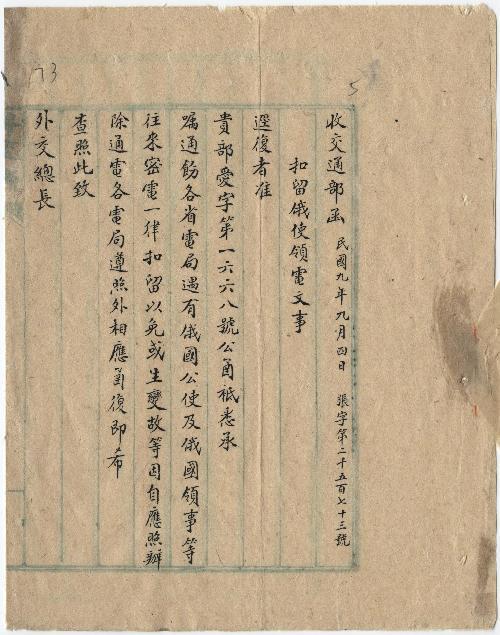 收交通部函 民國九年九月四日 張字第二十五百七十三號
扣留俄使領電文事
逕復者准
貴部愛字第一六六八號公函祗悉承
囑通飭各省電局遇有俄國公使及俄國領事等
往來密電一律扣留以免或生變故等因自應照辦
除通電各電局遵照外相應函復即希
查照此致
外交總長
5
73